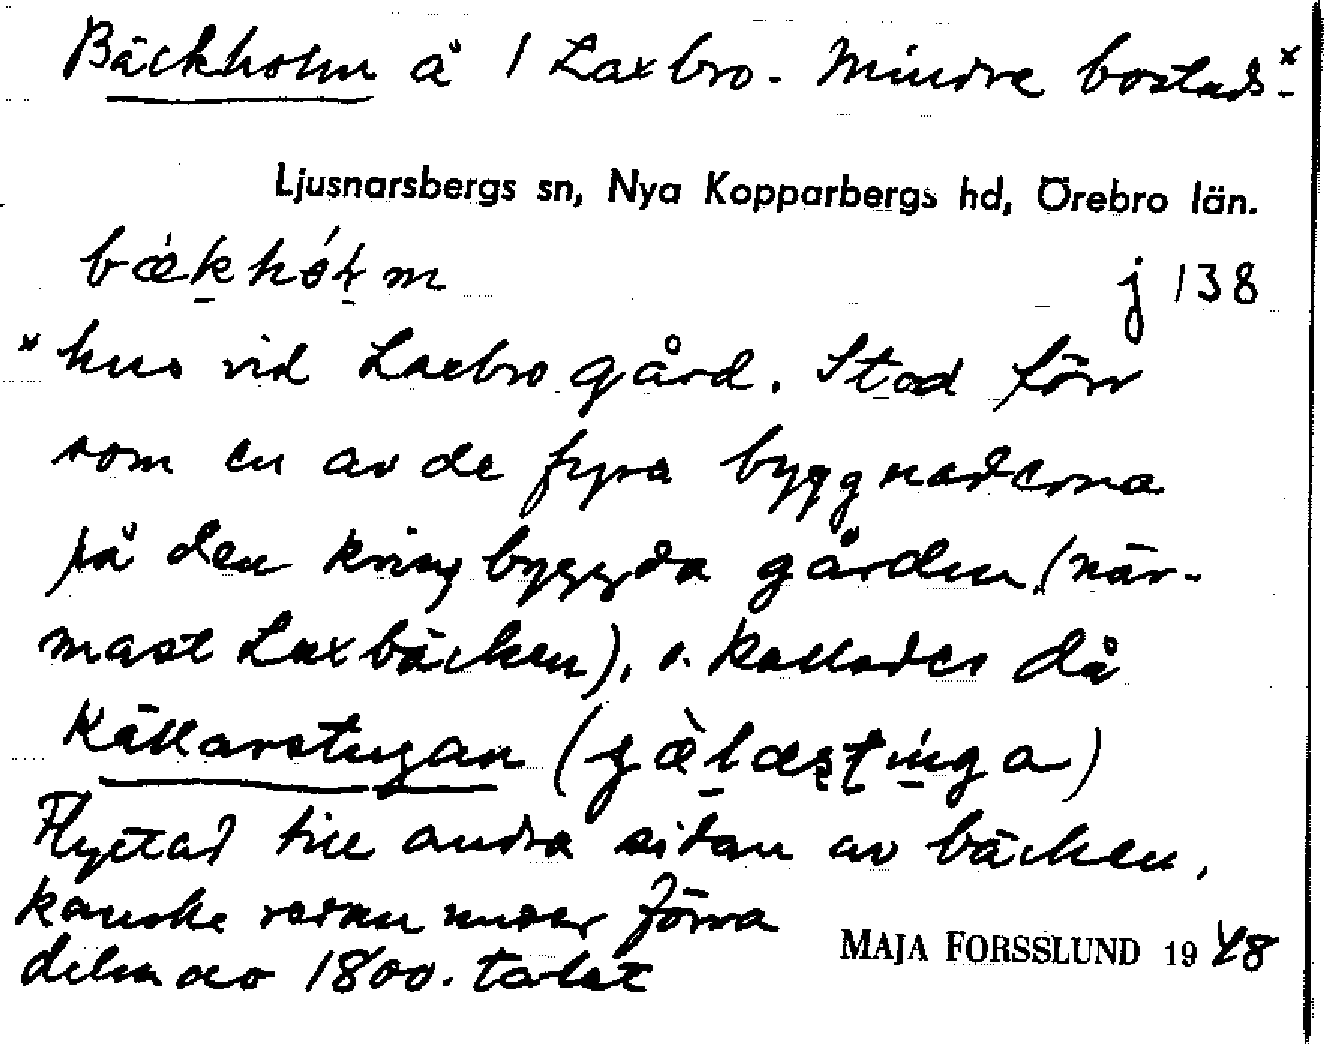 Bäckholm å 1 Laxbro. Mindre bostads-*
Ljusnarsbergs sn, Nya Kopparbergs hd, Örebro län.
bækhólm j 138
* hus vid Laxbro gård. Stod förr
som en av de fyra byggnaderna
på den kringbyggda gården (när-
mast Laxbäcken), o. kallades då
Källarstugan
Flyttad till andra sidan av bäcken,
kanske redan under förra
delen av 1800-talet
MAJA FORSSLUND 1948